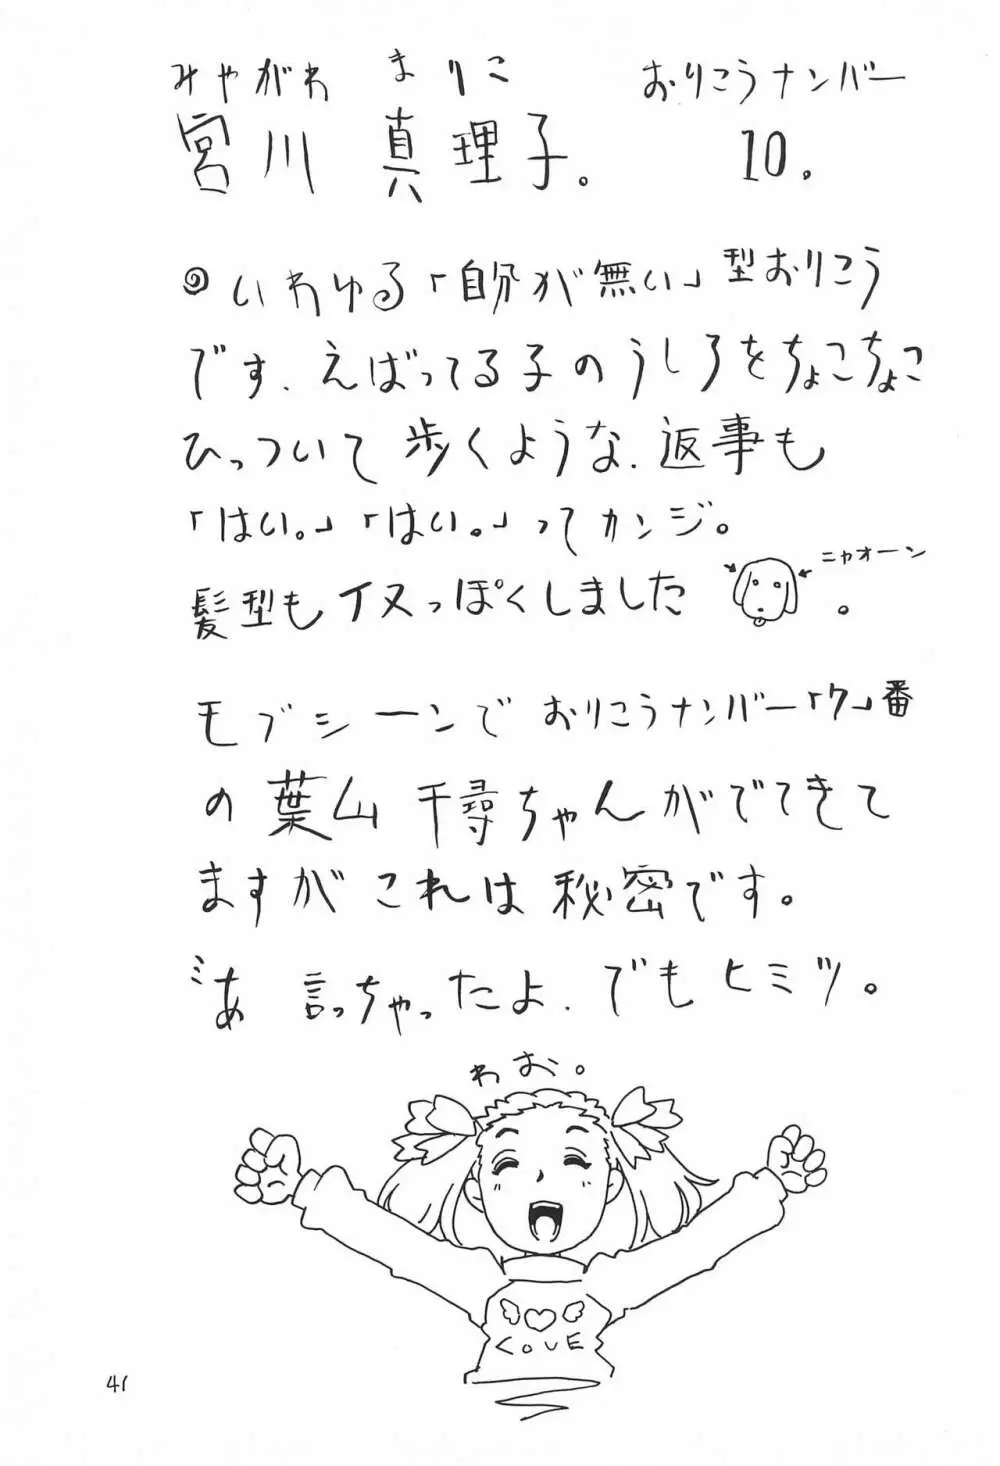 みやがわ まりこ おりこうナンバー
宮川 真理子。 10.
いわゆる「自分が無い」型おりこう
です、えばってる子のうしろをちょこちょこ
ひっついて歩くような、返事も
「はい。」「はい。」ってカンジ。
ニャオーン
髪型もイヌっぽくしました 。
モブシーンでおりこうナンバー「7」番
の葉山 千尋ちゃんがでてきて
ますがこれは秘密です。
あ 言っちゃったよ、でもヒミツ。
わお。
LOVE
41